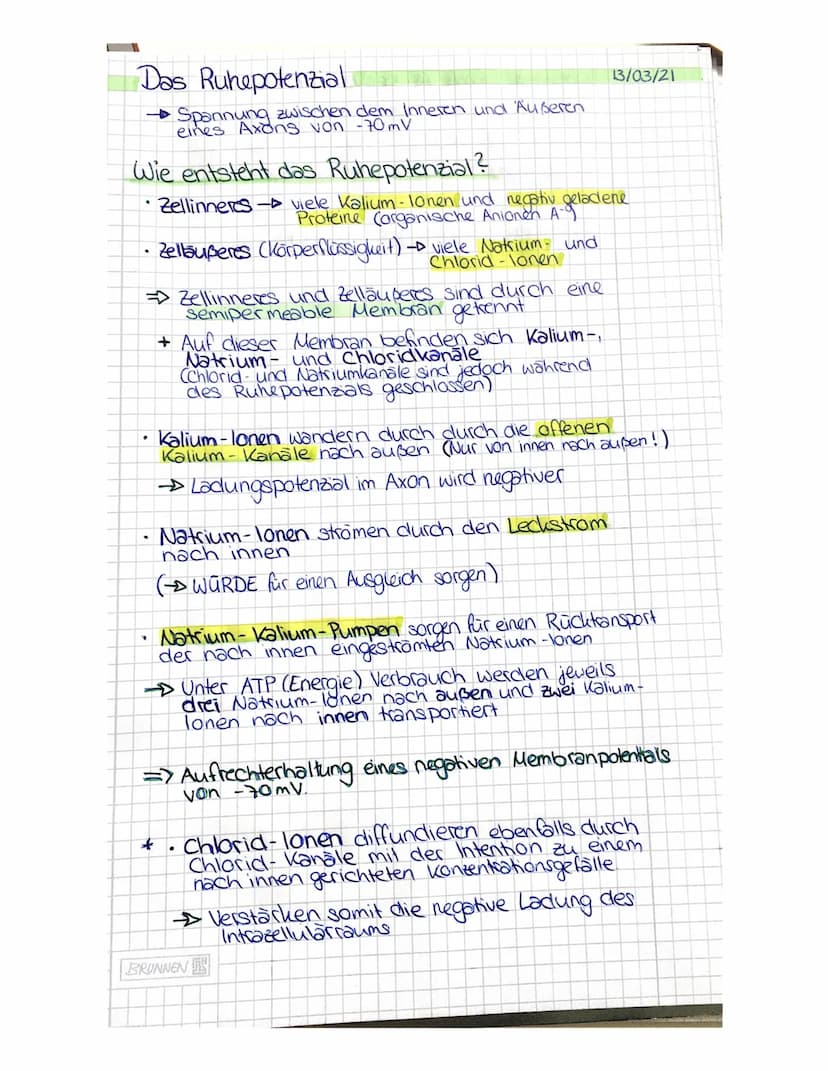 Das Ruhepotenzial 13/03/21
→ Spannung zwischen dem Inneren und Äußeren
eines Axons von -70mV
Wie entsteht das Ruhepotenzial?
· Zellinneres → viele Kalium-Ionen und negativ geladene
Proteine (organische Anionen A-)
· Zelläußeres (Körperflüssigkeit) → viele Natrium- und
Chlorid-Ionen
⇒ Zellinneres und Zelläußeres sind durch eine
semipermeable Membran getrennt
+ Auf dieser Membran befinden sich Kalium-,
Natrium- und Chloridkanäle
(Chlorid- und Natriumkanäle sind jedoch während
des Ruhepotenzials geschlossen)
· Kalium-Ionen wandern durch durch die offenen
Kalium-Kanäle nach außen (Nur von innen nach außen!)
→ Ladungspotenzial im Axon wird negativer
· Natrium-Ionen strömen durch den Leckstrom
nach innen
(→ WÜRDE für einen Ausgleich sorgen)
· Natrium-Kalium-Pumpen sorgen für einen Rücktransport
der nach innen eingeströmten Natrium-Ionen
→ Unter ATP (Energie) Verbrauch werden jeweils
drei Natrium-Ionen nach außen und zwei Kalium-
Ionen nach innen transportiert
⇒ Aufrechterhaltung eines negativen Membranpotentials
von -70mV.
* · Chlorid-Ionen diffundieren ebenfalls durch
Chlorid-Kanäle mit der Intention zu einem
nach innen gerichteten Konzentrationsgefälle
→ Verstärken somit die negative Ladung des
Intrazellulärraums
BRUNNEN